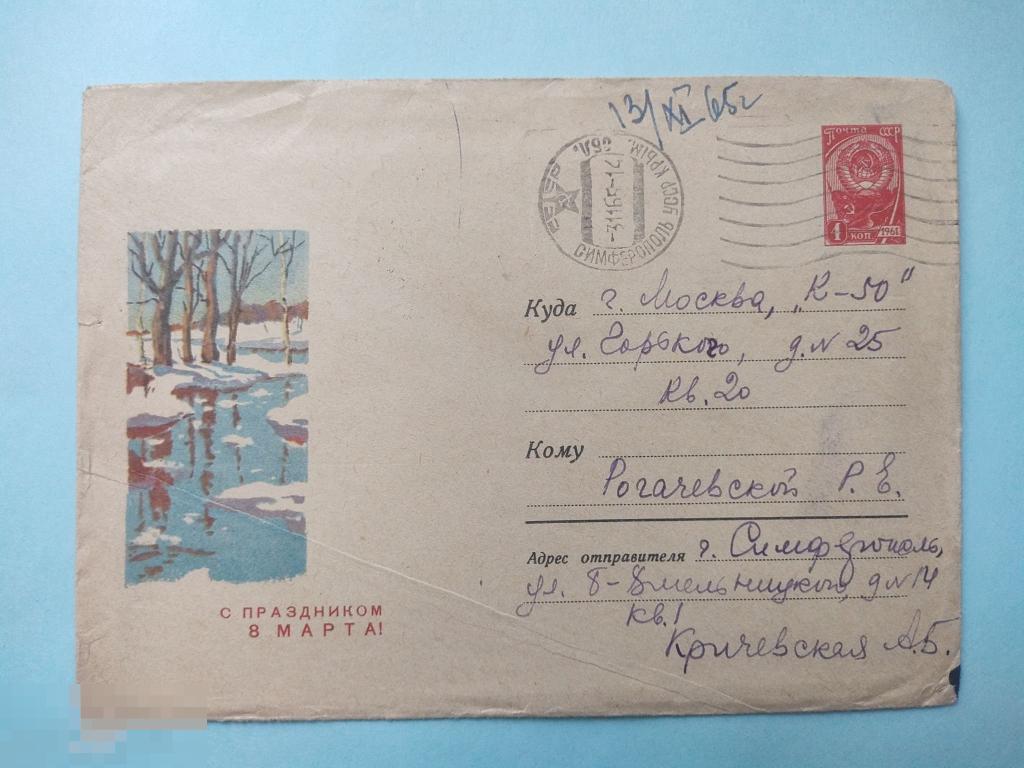 13/XI 65г
СИМФЕРОПОЛЬ УССР КРЫМ. ОБЛ.
-31165-14
Почта СССР
4 коп 1961
Куда г. Москва, „К-50"
ул. Горького, д. N 25
кв. 20
Кому
Рогачевской Р. Е.
Адрес отправителя г. Симферополь,
ул. Б-Хмельницкого, д N 14
кв. 1
Кричевская А.Б.
С ПРАЗДНИКОМ
8 МАРТА!